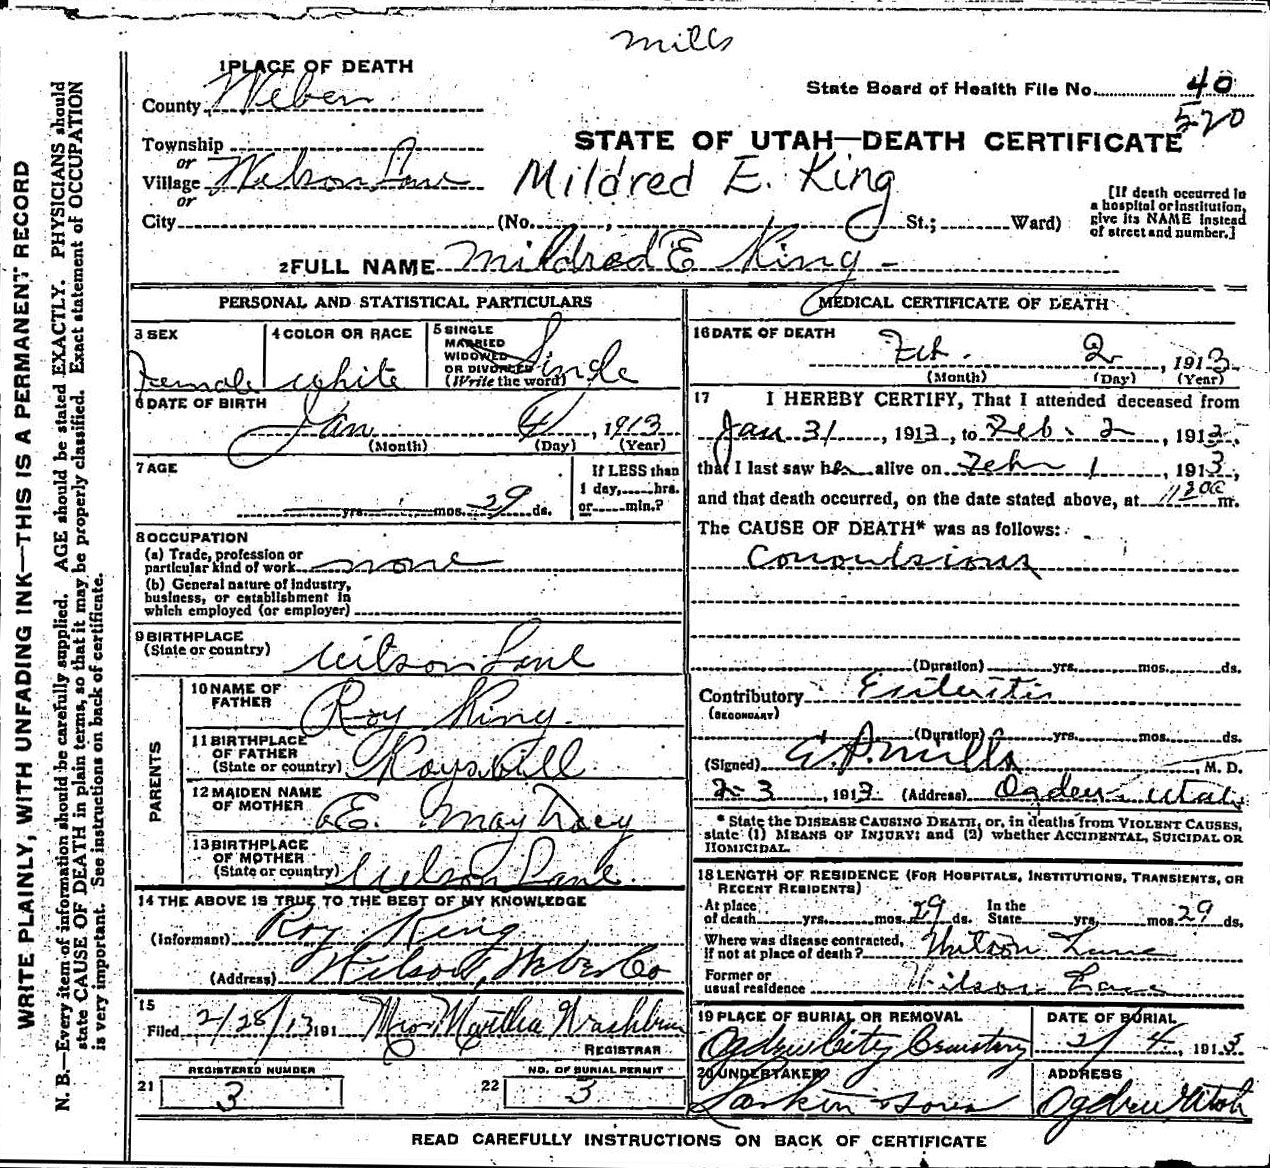 Mills
1 PLACE OF DEATH
County Weber
State Board of Health File No. 40
520
Township
or
Village Wilson Lane
or
STATE OF UTAH—DEATH CERTIFICATE
Mildred E. King
City (No. , St.; Ward)
[If death occurred in
a hospital or institution,
give its NAME instead
of street and number.]
2 FULL NAME Mildred E King
PERSONAL AND STATISTICAL PARTICULARS
3 SEX
Female
4 COLOR OR RACE
White
5 SINGLE
MARRIED
WIDOWED
OR DIVORCED
(Write the word)
Single
6 DATE OF BIRTH
Jan 4, 1913
(Month) (Day) (Year)
7 AGE
yrs. mos. 29 ds.
If LESS than
1 day, hrs.
or min.?
8 OCCUPATION
(a) Trade, profession or
particular kind of work none
(b) General nature of industry,
business, or establishment in
which employed (or employer)
9 BIRTHPLACE
(State or country) Wilson Lane
PARENTS
10 NAME OF
FATHER Roy King
11 BIRTHPLACE
OF FATHER
(State or country) Kaysvill
12 MAIDEN NAME
OF MOTHER E. May Tracy
13 BIRTHPLACE
OF MOTHER
(State or country) Wilson Lane
14 THE ABOVE IS TRUE TO THE BEST OF MY KNOWLEDGE
(Informant) Roy King
(Address) Wilson, Weber Co
15
Filed 2/28/13 191 Mrs Martha Washburn
REGISTRAR
REGISTERED NUMBER
21 3
NO. OF BURIAL PERMIT
22 3
MEDICAL CERTIFICATE OF DEATH
16 DATE OF DEATH
Feb. 2, 1913
(Month) (Day) (Year)
17 I HEREBY CERTIFY, That I attended deceased from
Jan 31, 1913, to Feb. 2, 1913,
that I last saw her alive on Feby 1, 1913,
and that death occurred, on the date stated above, at 11 30 a m.
The CAUSE OF DEATH* was as follows:
Convulsions
(Duration) yrs. mos. ds.
Contributory Enteritis
(SECONDARY)
(Duration) yrs. mos. ds.
(Signed) Mills, M. D.
2-3, 1913 (Address) Ogden Utah
* State the DISEASE CAUSING DEATH, or, in deaths from VIOLENT CAUSES,
state (1) MEANS OF INJURY; and (2) whether ACCIDENTAL, SUICIDAL OR
HOMICIDAL.
18 LENGTH OF RESIDENCE (FOR HOSPITALS, INSTITUTIONS, TRANSIENTS, OR
RECENT RESIDENTS)
At place
of death yrs. mos. 29 ds. In the
State yrs. mos. 29 ds.
Where was disease contracted,
if not at place of death? Wilson Lane
Former or
usual residence Wilson Lane
19 PLACE OF BURIAL OR REMOVAL
Ogden City Cemetery
DATE OF BURIAL
2/4, 1913
20 UNDERTAKER
Larkin & Sons
ADDRESS
Ogden Utah
READ CAREFULLY INSTRUCTIONS ON BACK OF CERTIFICATE
WRITE PLAINLY, WITH UNFADING INK—THIS IS A PERMANENT RECORD
N. B.—Every item of information should be carefully supplied. AGE should be stated EXACTLY. PHYSICIANS should
state CAUSE OF DEATH in plain terms, so that it may be properly classified. Exact statement of OCCUPATION
is very important. See instructions on back of certificate.